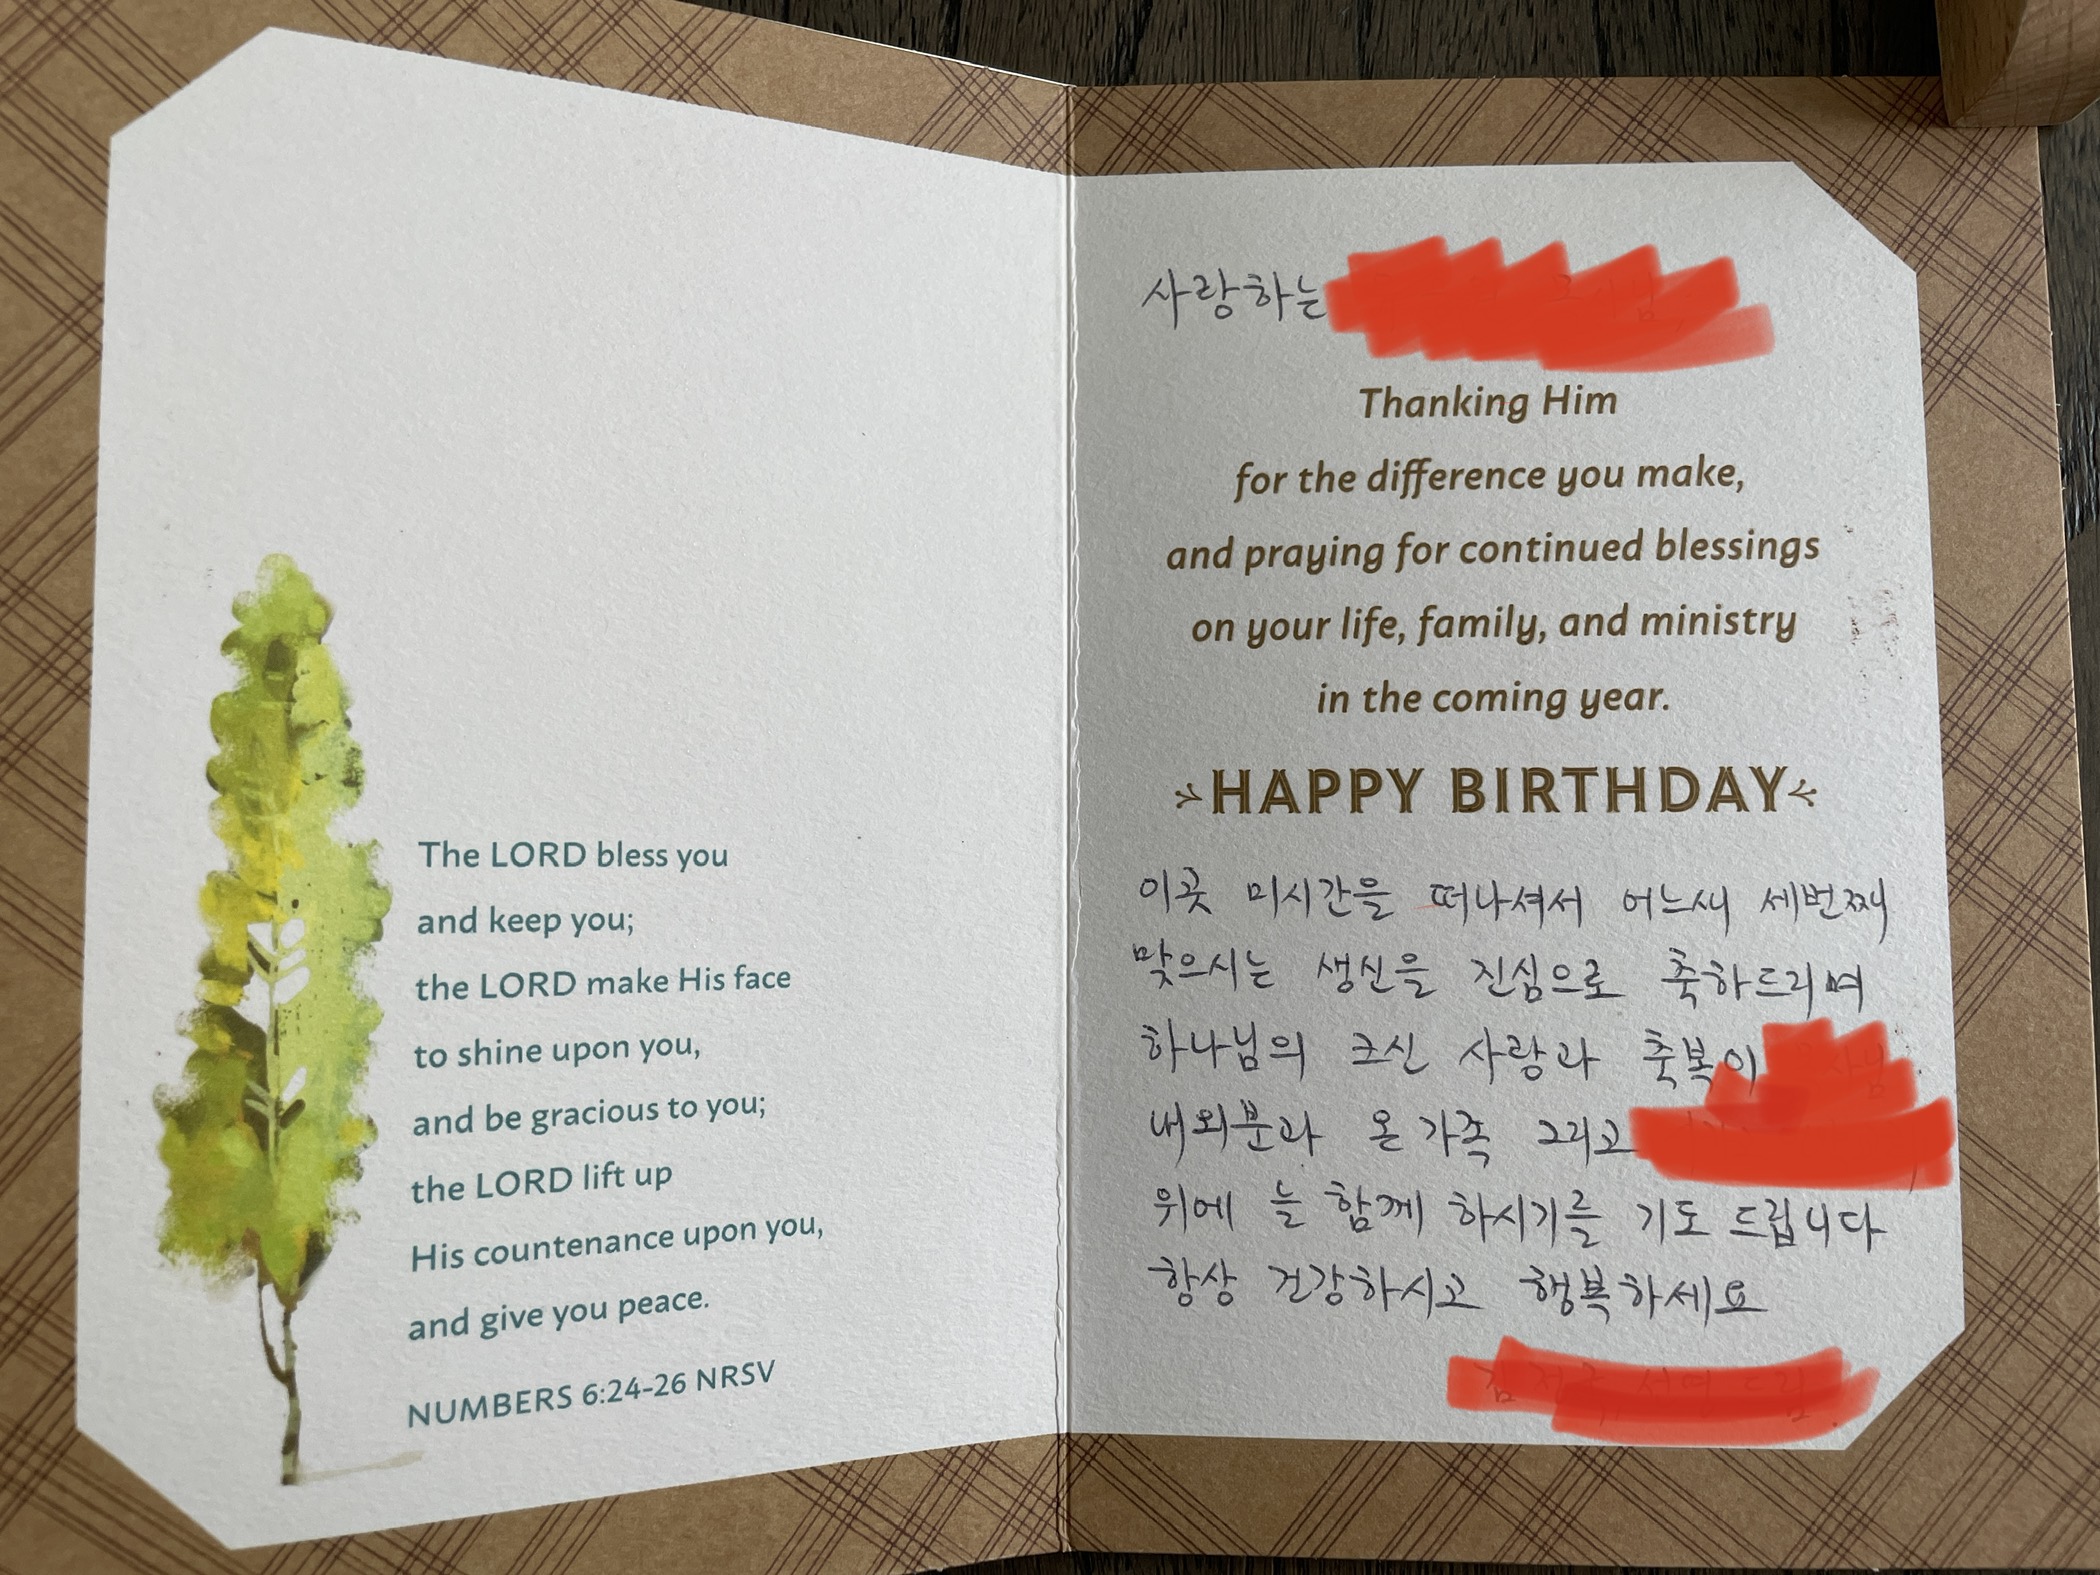 The LORD bless you
and keep you;
the LORD make His face
to shine upon you,
and be gracious to you;
the LORD lift up
His countenance upon you,
and give you peace.
NUMBERS 6:24-26 NRSV
사랑하는
Thanking Him
for the difference you make,
and praying for continued blessings
on your life, family, and ministry
in the coming year.
HAPPY BIRTHDAY
이곳 미시간을 떠나셔서 어느새 세번째
맞으시는 생신을 진심으로 축하드리며
하나님의 크신 사랑과 축복이
내외분과 온가족 그리고
위에 늘 함께 하시기를 기도 드립니다
항상 건강하시고 행복하세요